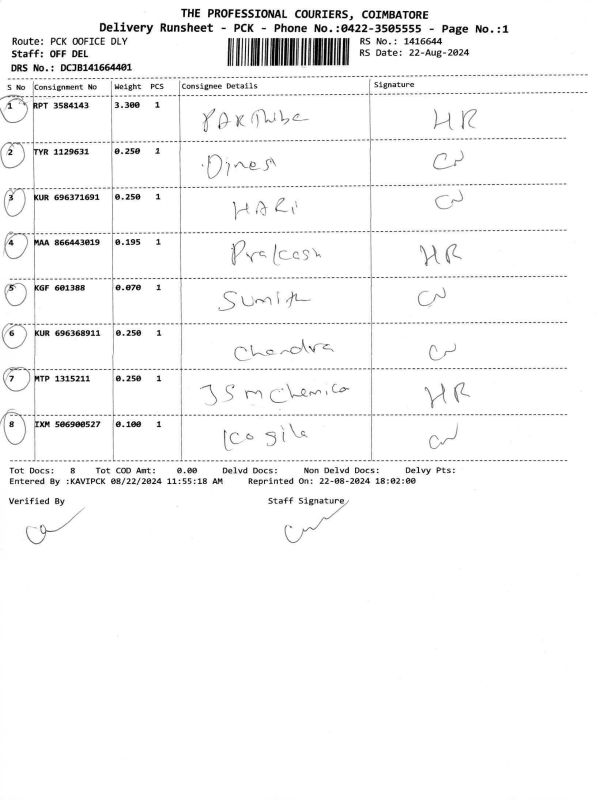 THE PROFESSIONAL COURIERS, COIMBATORE
Delivery Runsheet - PCK - Phone No.:0422-3505555 - Page No.:1
Route: PCK OOFICE DLY RS No.: 1416644
Staff: OFF DEL RS Date: 22-Aug-2024
DRS No.: DCJB141664401
S No Consignment No Weight PCS Consignee Details Signature
1 RPT 3584143 3.300 1 PARthibe HR
2 TYR 1129631 0.250 1 Dines CN
3 KUR 696371691 0.250 1 HARi CN
4 MAA 866443019 0.195 1 Prakash HR
5 KGF 601388 0.070 1 Sumith CN
6 KUR 696368911 0.250 1 Chandra CN
7 MTP 1315211 0.250 1 JSM Chemica HR
8 IXM 506900527 0.100 1 Kogila CN
Tot Docs: 8 Tot COD Amt: 0.00 Delvd Docs: Non Delvd Docs: Delvy Pts:
Entered By :KAVIPCK 08/22/2024 11:55:18 AM Reprinted On: 22-08-2024 18:02:00
Verified By Staff Signature